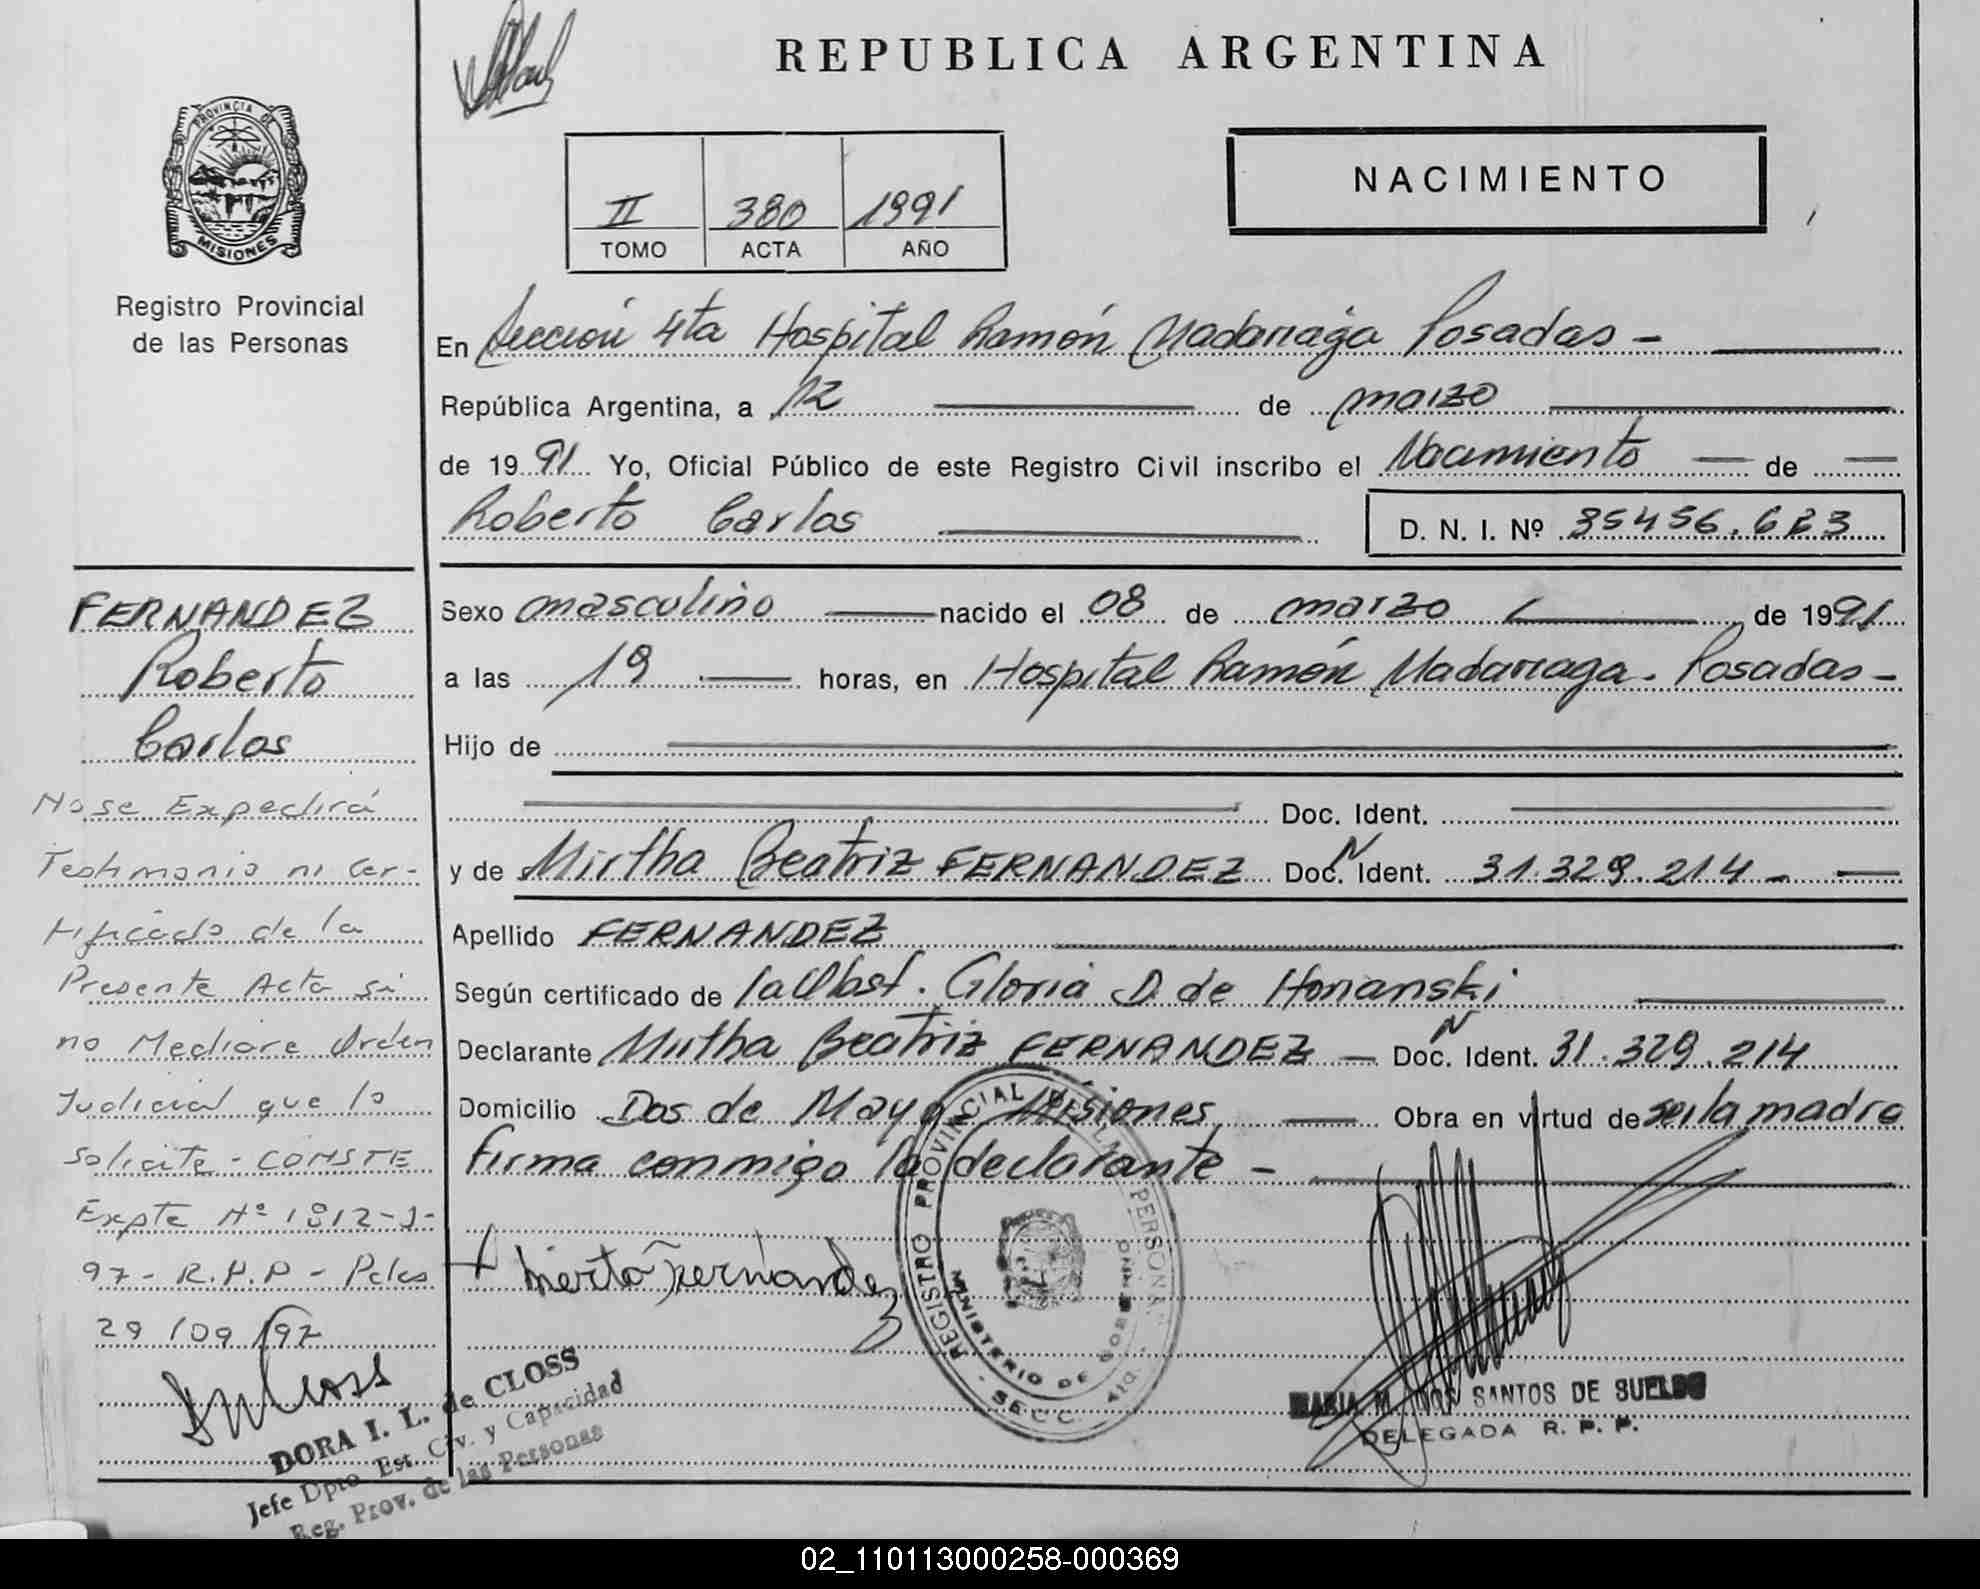 REPUBLICA ARGENTINA
NACIMIENTO
II 380 1991
TOMO ACTA AÑO
PROVINCIA DE
MISIONES
Registro Provincial
de las Personas
En Sección 4ta Hospital Ramón Madariaga Posadas -
República Argentina, a 12 de marzo
de 1991 Yo, Oficial Público de este Registro Civil inscribo el Nacimiento de
Roberto Carlos D. N. I. Nº 35456.663
Sexo masculino nacido el 08 de marzo de 1991
a las 19 horas, en Hospital Ramón Madariaga. Posadas -
Hijo de
Doc. Ident.
y de Mirtha Beatriz FERNANDEZ Doc. N Ident. 31.329.214 -
Apellido FERNANDEZ
Según certificado de la Obst. Gloria D. de Honanski
Declarante Mirtha Beatriz FERNANDEZ - Doc. N Ident. 31.329.214
Domicilio Dos de Mayo Misiones Obra en virtud de ser la madre
firma conmigo la declarante -
FERNANDEZ
Roberto
Carlos
No se Expedirá
Testimonio ni Cer-
tificado de la
Presente Acta si
no Mediare Orden
Judicial que lo
solicite - CONSTE
Expte Nº 1812-J-
97 - R.P.P - Pdas
29/09/97
DORA I. L. de CLOSS
Jefe Dpto. Est. Civ. y Capacidad
Reg. Prov. de las Personas
+ Mierta Fernandez
REGISTRO PROVINCIAL DE LAS PERSONAS
MINISTERIO DE GOBIERNO
- SECC. 4ta.
MARIA M. DOS SANTOS DE SUELDO
DELEGADA R. P. P.
02_110113000258-000369